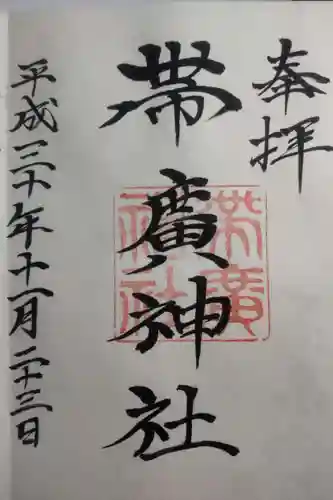 奉拝
帯廣神社
帯廣神社
平成三十年十一月二十三日